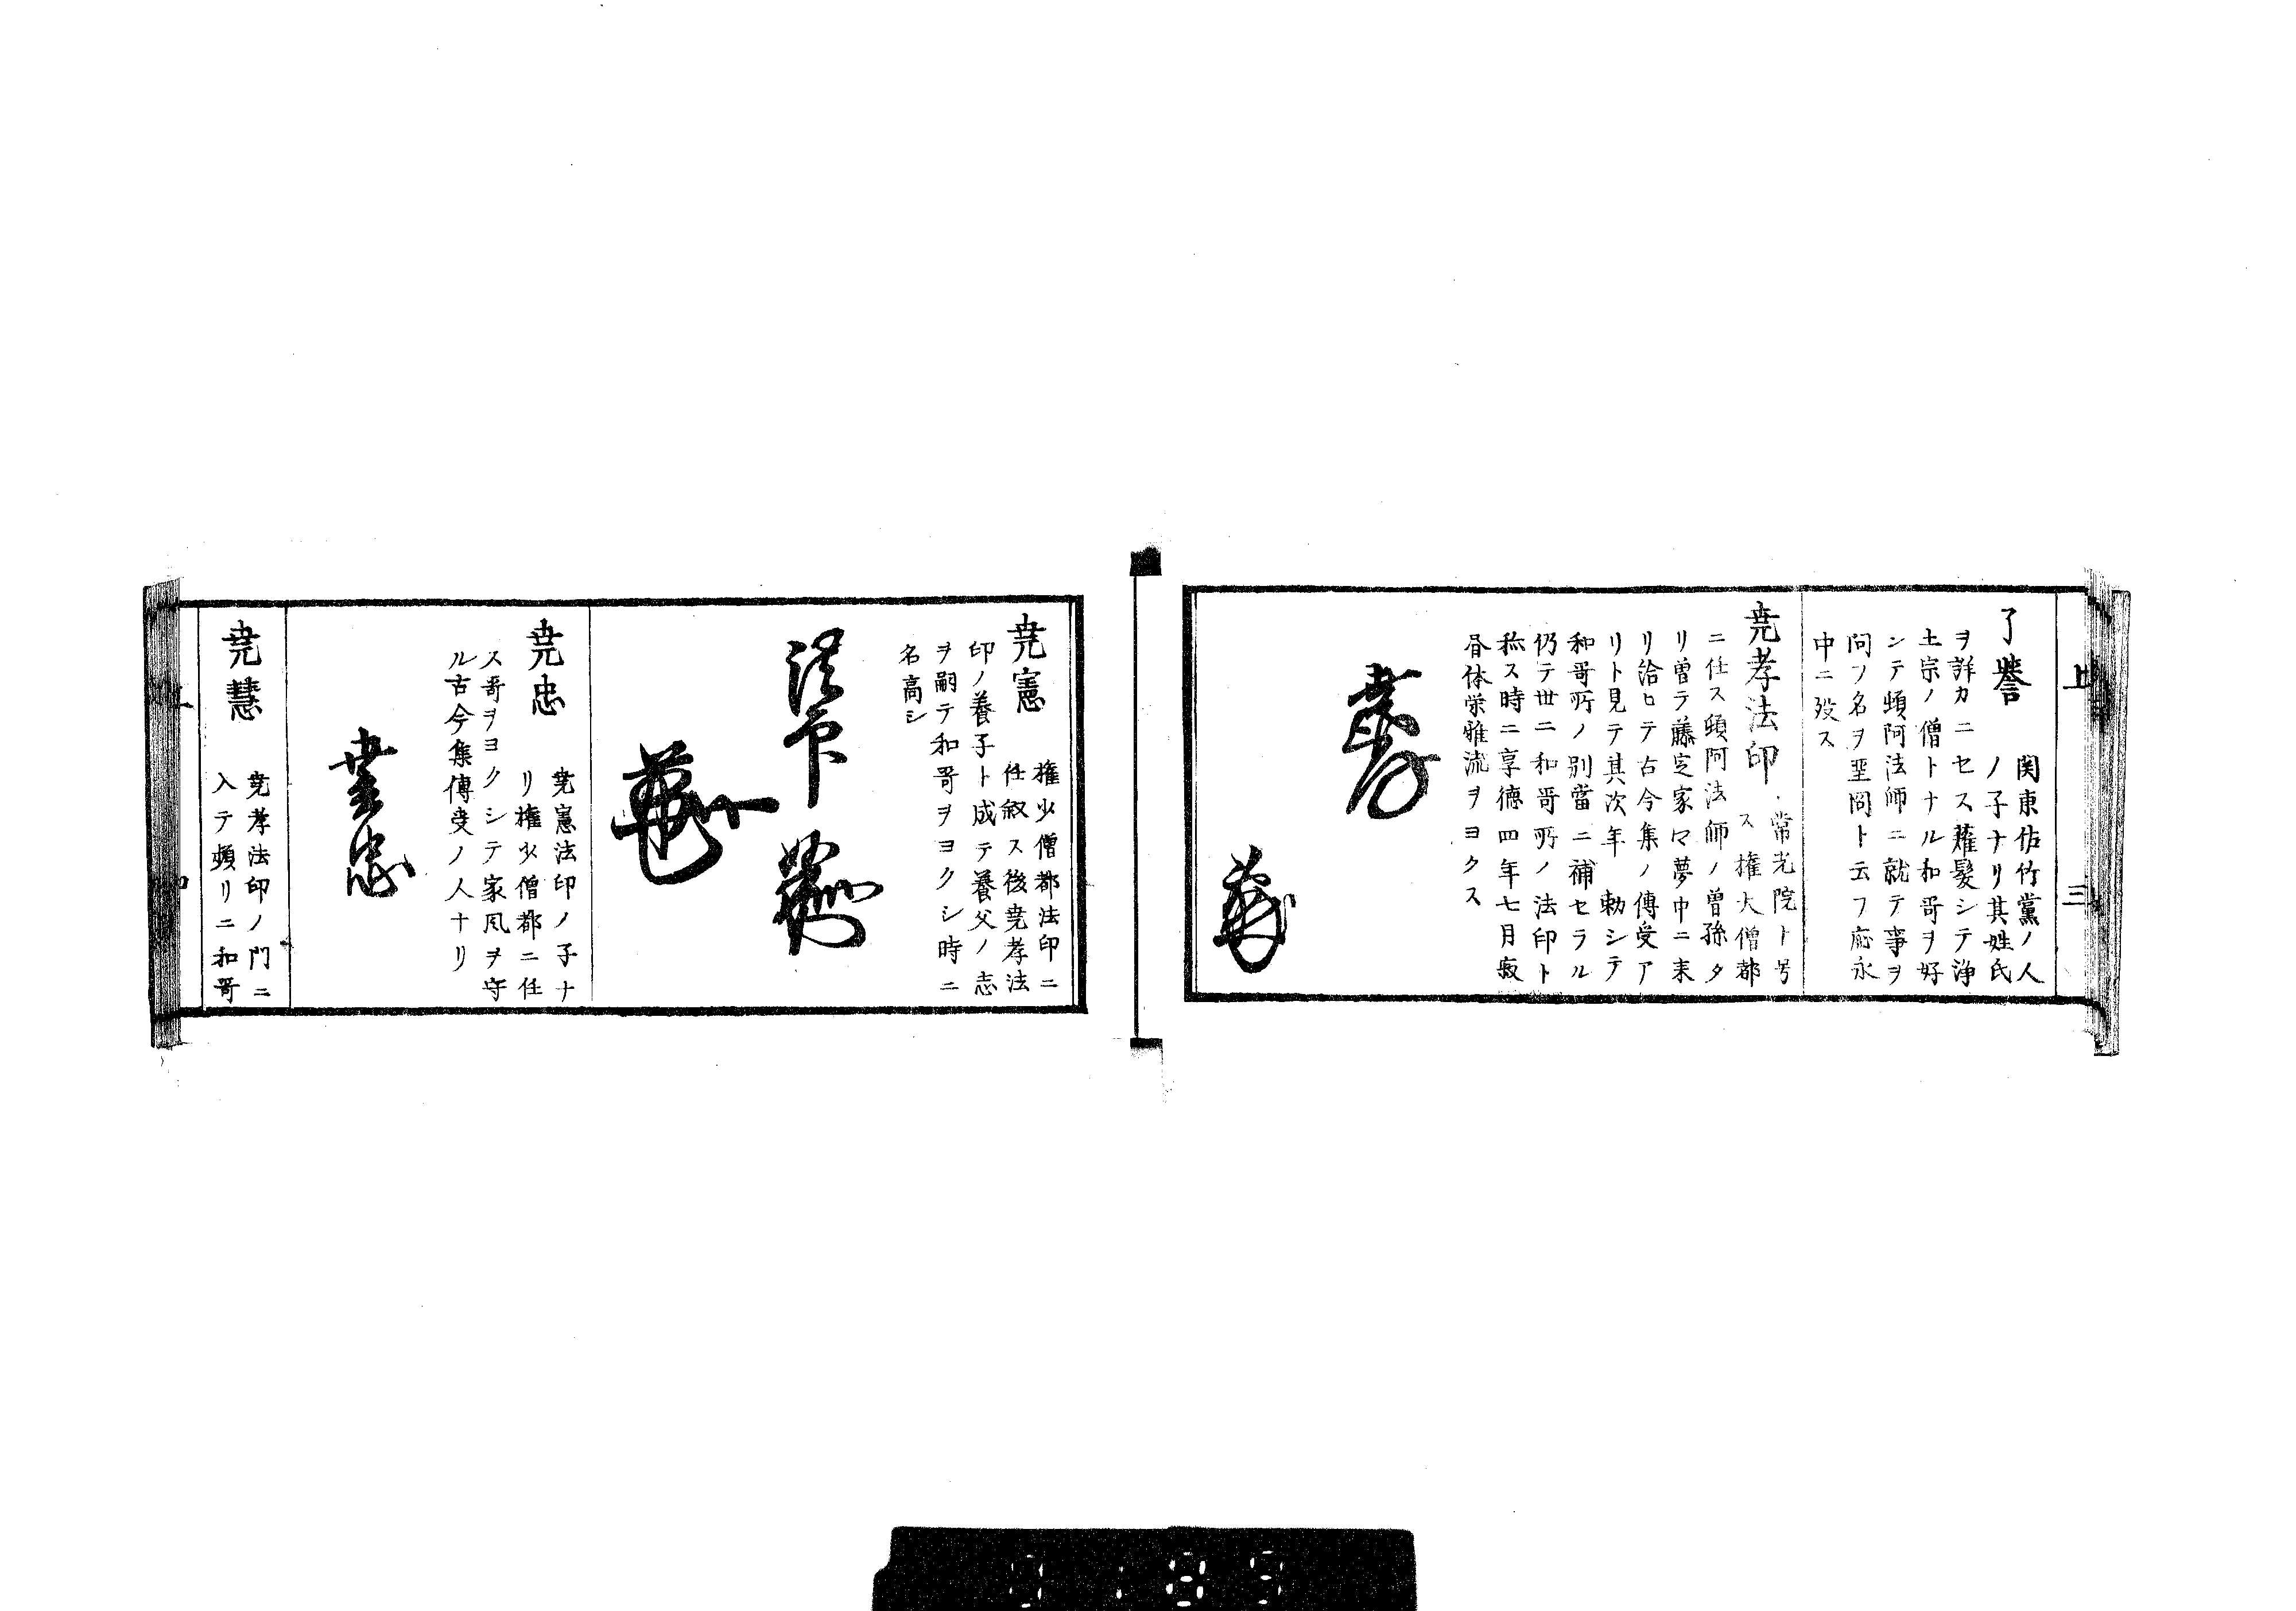 上 三
了誉 関東佐竹黨ノ人
ノ子ナリ其姓氏
ヲ詳カニセス薙髪シテ浄
土宗ノ僧トナル和哥ヲ好
ンテ頓阿法師ニ就テ事ヲ
問フ名ヲ聖冏ト云フ應永
中ニ歿ス
尭孝法印 常光院ト号
ス権大僧都
ニ任ス頓阿法師ノ曽孫タ
リ曽テ藤定家卿夢中ニ来
リ給ヒテ古今集ノ傳受ア
リト見テ其次年 勅シテ
和哥所ノ別當ニ補セラル
仍テ世ニ和哥所ノ法印ト
称ス時ニ享徳四年七月寂
昏体栄雅流ヲヨクス
尭憲 権少僧都法印ニ
任叙ス後尭孝法
印ノ養子ト成テ養父ノ志
ヲ嗣テ和哥ヲヨクシ時ニ
名高シ
法印
尭忠 尭憲法印ノ子ナ
リ権少僧都ニ任
ス哥ヲヨクシテ家風ヲ守
ル古今集傳受ノ人ナリ
尭忠
尭慧 尭孝法印ノ門ニ
入テ頻リニ和哥